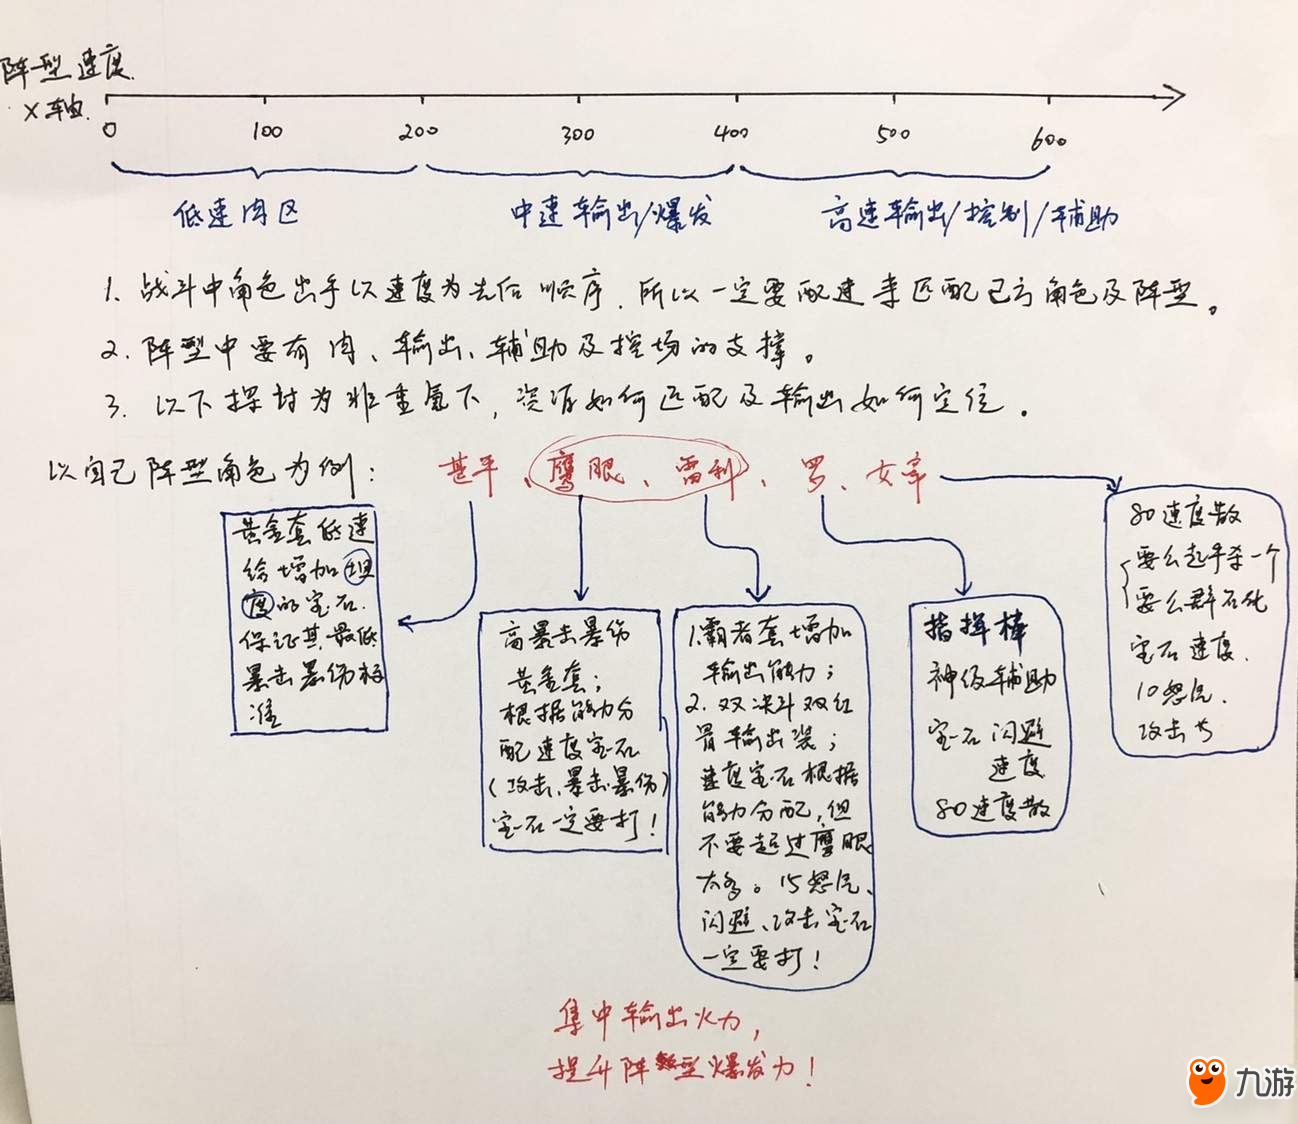 阵型速度
X轴
0 100 200 300 400 500 600
低速肉区 中速输出/爆发 高速输出/控制/辅助
1. 战斗中角色出手以速度为先后顺序，所以一定要配速来匹配己方角色及阵型。
2. 阵型中要有肉、输出、辅助及控场的支撑。
3. 以下探讨为非重氪下，资源如何匹配及输出如何定位。
以自己阵型角色为例：甚平、鹰眼、雷利、罗、女帝
黄金套低速
给增加坦
度的宝石.
保证其最低
暴击暴伤标
准
高暴击暴伤
黄金套；
根据能力分
配速度宝石
(攻击、暴击暴伤)
宝石一定要打！
1.霸者套增加
输出能力；
2. 双决斗双红
骨输出装；
速度宝石根据
能力分配，但
不要超过鹰眼
太多。15怒气、
闪避、攻击宝石
一定要打！
指挥棒
神级辅助
宝石闪避
速度
80速度散
80速度散
要么起手杀一个
要么群石化
宝石速度.
10怒气.
攻击
集中输出火力，
提升阵型爆发力！
九游